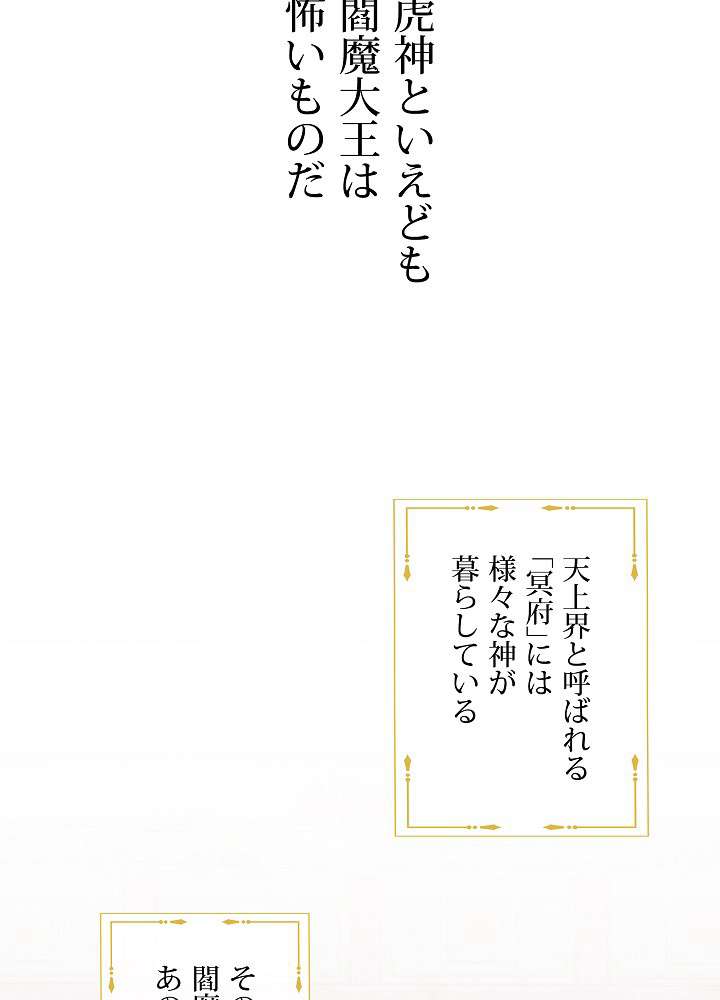 虎神といえども
閻魔大王は
怖いものだ
天上界と呼ばれる
「冥府」には
様々な神が
暮らしている
その
閻魔
あの